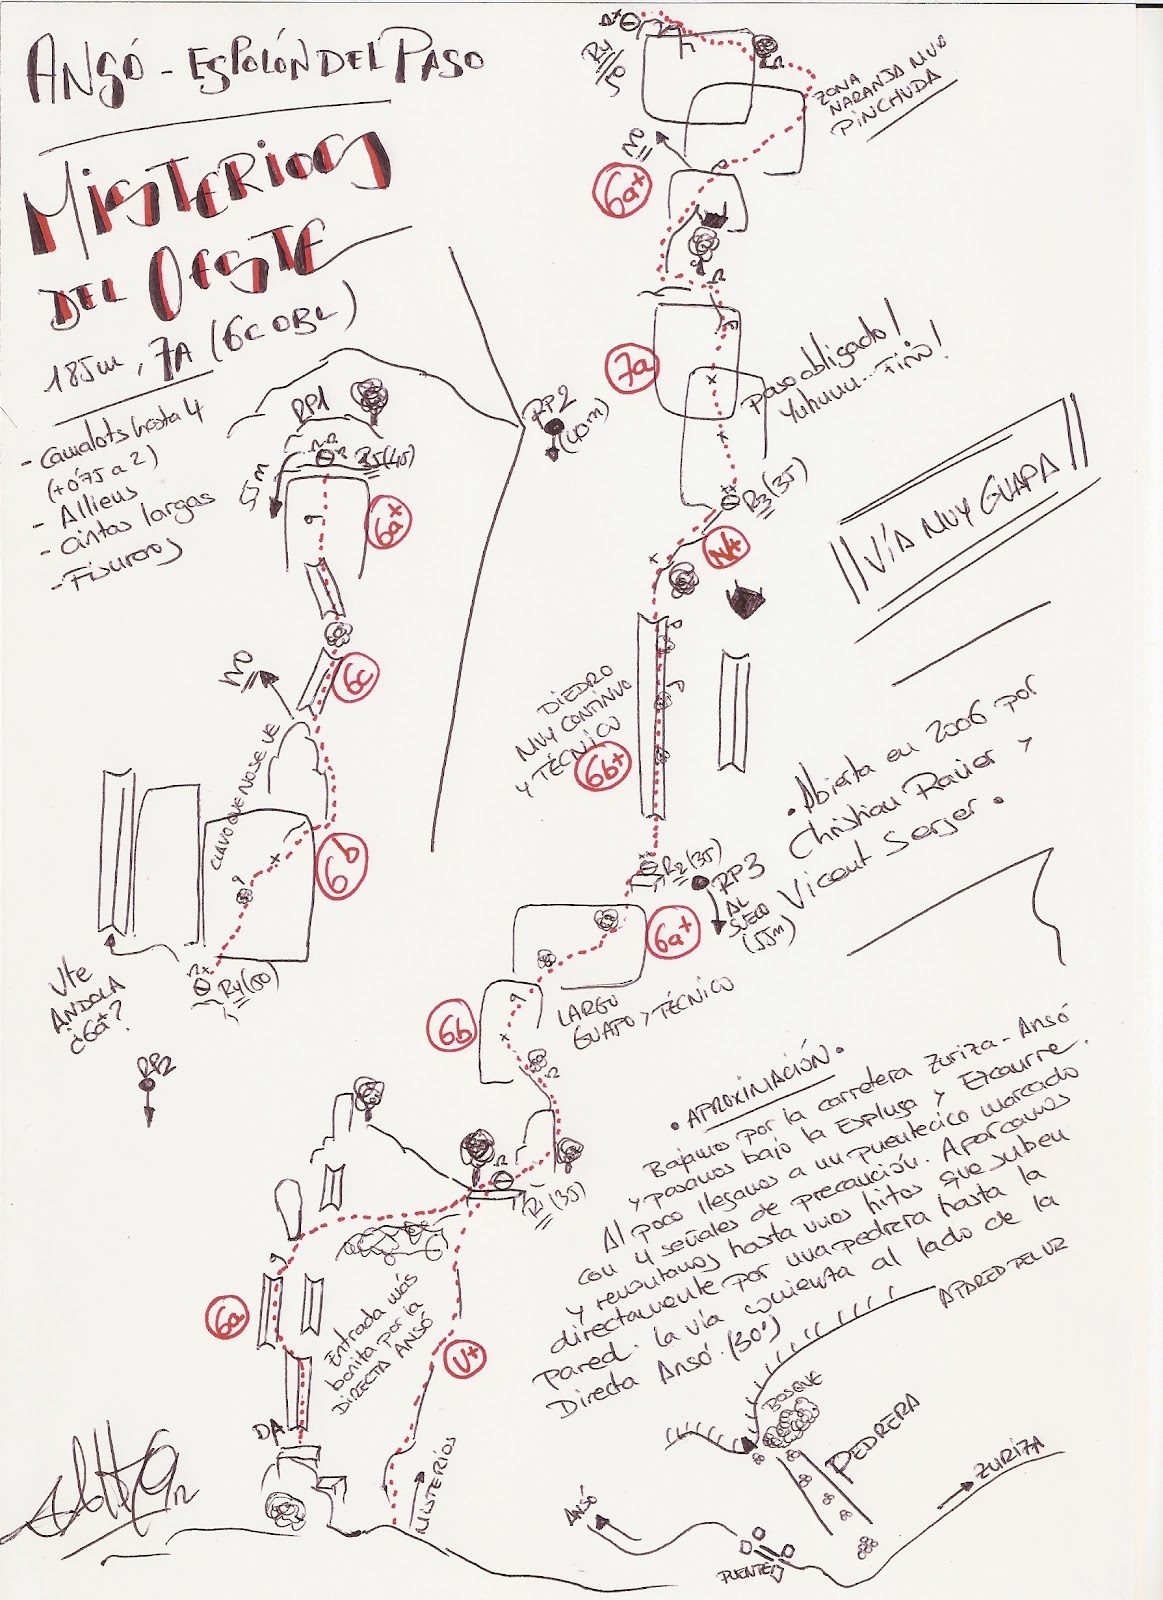 ANSÓ - ESPOLÓN DEL PASO
MISTERIOS
DEL OESTE
185m, 7A (6c OBL)
- Camalots hasta 4
(+0'75 a 2)
- Alliens
- Cintas largas
- Fisureros
RP1
R5(45)
55m
6a+
6c
MO
CLAVO QUE NO SE VE
6b
R4(60)
Vte
ANDOLA
¿6a+?
RP2
R4
ZONA
NARANJA MUY
PINCHUDA
MO
6a+
7a
paso obligado!
Yuhuuu... Fino!
RP2
(40m)
R3(35)
V+
DIEDRO
MUY CONTÍNUO
Y TÉCNICO
6b+
R2(35)
RP3
AL
SUELO
(55m)
6a+
LARGO
GUAPO Y TÉCNICO
6b
R1(35)
6a
Entrada más
bonita por la
DIRECTA ANSÓ
V+
DA
MISTERIOS
VÍA MUY GUAPA
• Abierta en 2006 por
Christian Ravier y
Vicent Serger •
• APROXIMACIÓN •
Bajamos por la carretera Zuriza - Ansó
y pasamos bajo la Espluga y Ezcaurre.
Al poco llegamos a un puentecico marcado
con 4 señales de precaución. Aparcamos
y remontamos hasta unos hitos que suben
directamente por una pedrera hasta la
pared. La vía comienza al lado de la
Directa Ansó. (30')
BOSQUE
PEDRERA
ZURIZA
ANSÓ
PUENTE